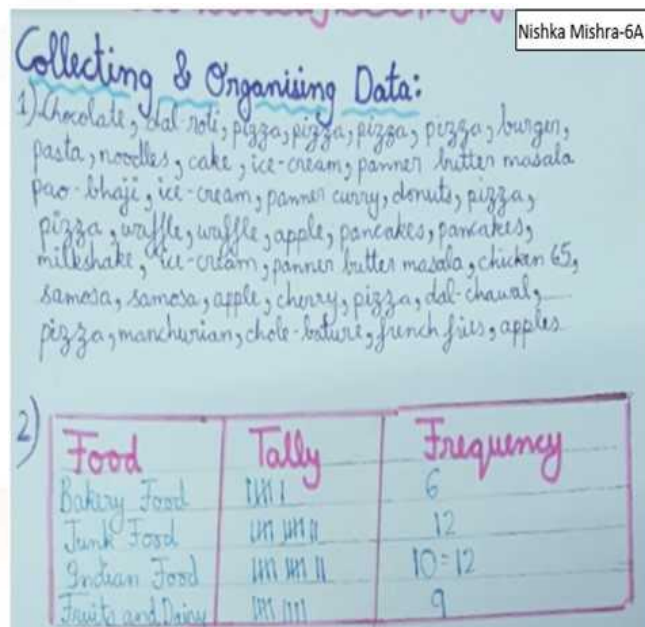 Nishka Mishra-6A
Collecting & Organising Data:
1) Chocolate, dal-roti, pizza, pizza, pizza, pizza, burger,
pasta, noodles, cake, ice-cream, panner butter masala
pao-bhaji, ice-cream, panner curry, donuts, pizza,
pizza, waffle, waffle, apple, pancakes, pancakes,
milkshake, ice-cream, panner butter masala, chicken 65,
samosa, samosa, apple, cherry, pizza, dal-chawal,
pizza, manchurian, chole-bature, french fries, apples
2)
Food Tally Frequency
Bakery Food 6
Junk Food 12
Indian Food 10=12
Fruits and Dairy 9